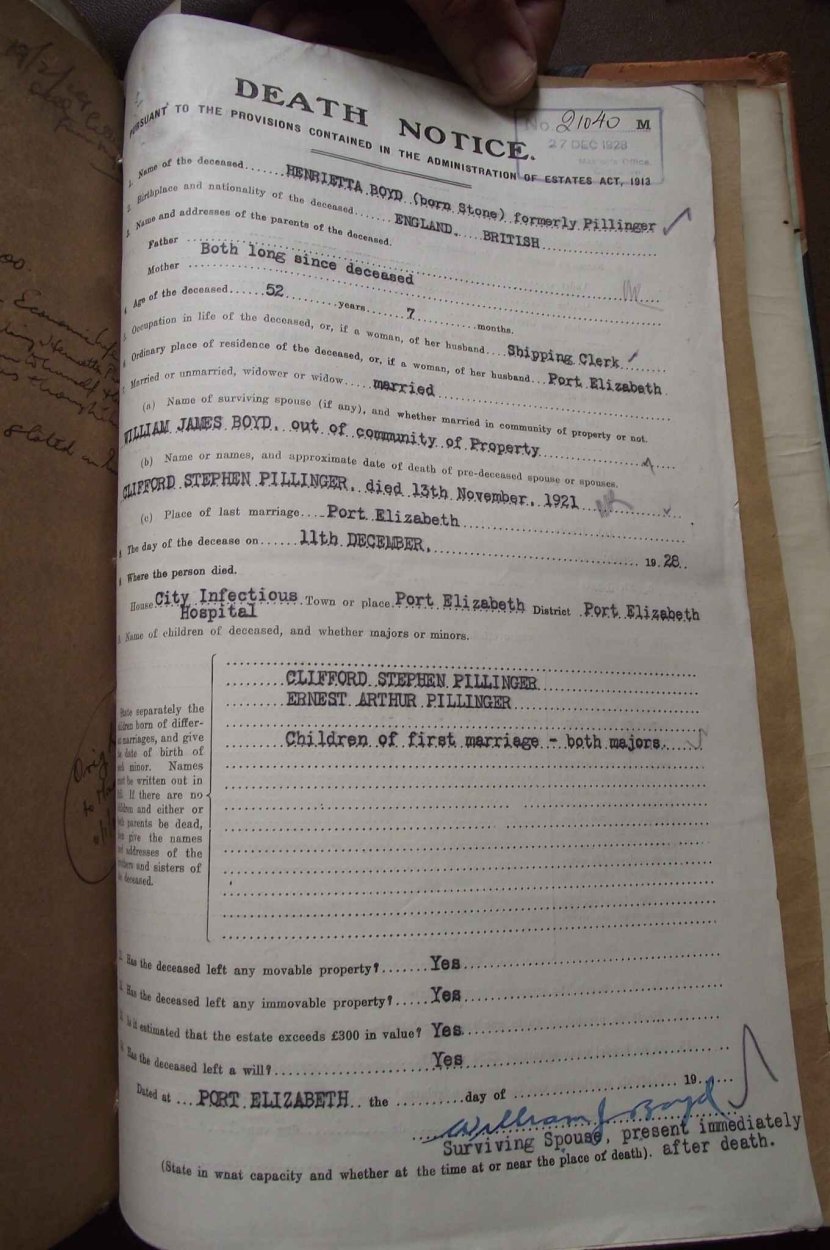 DEATH NOTICE.
No. 21040 M
27 DEC 1928
PURSUANT TO THE PROVISIONS CONTAINED IN THE ADMINISTRATION OF ESTATES ACT, 1913
1. Name of the deceased HENRIETTA BOYD (born Stone) formerly Pillinger
2. Birthplace and nationality of the deceased ENGLAND. BRITISH
3. Name and addresses of the parents of the deceased.
Father
Both long since deceased
Mother
4. Age of the deceased 52 years 7 months.
5. Occupation in life of the deceased, or, if a woman, of her husband Shipping Clerk
6. Ordinary place of residence of the deceased, or, if a woman, of her husband Port Elizabeth
7. Married or unmarried, widower or widow married
(a) Name of surviving spouse (if any), and whether married in community of property or not.
WILLIAM JAMES BOYD, out of community of Property
(b) Name or names, and approximate date of death of pre-deceased spouse or spouses.
CLIFFORD STEPHEN PILLINGER, died 13th November, 1921
(c) Place of last marriage Port Elizabeth
8. The day of the decease on 11th DECEMBER, 1928.
9. Where the person died.
House City Infectious Town or place Port Elizabeth District Port Elizabeth
Hospital
Name of children of deceased, and whether majors or minors.
CLIFFORD STEPHEN PILLINGER
ERNEST ARTHUR PILLINGER
Children of first marriage - both majors.
State separately the
children born of differ-
marriages, and give
date of birth of
minor. Names
be written out in
If there are no
children and either or
parents be dead,
give the names
addresses of the
and sisters of
deceased.
Has the deceased left any movable property? Yes
Has the deceased left any immovable property? Yes
Is it estimated that the estate exceeds £300 in value? Yes
Has the deceased left a will? Yes
Dated at PORT ELIZABETH the day of 19
William J Boyd
Surviving Spouse, present immediately
after death.
(State in what capacity and whether at the time at or near the place of death).